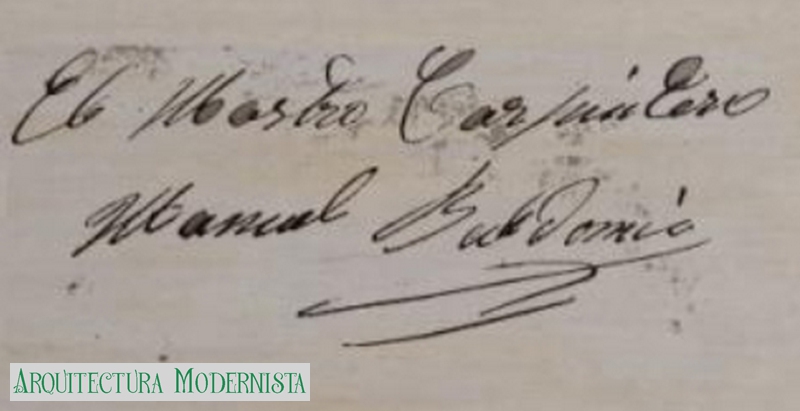 El Mastro Carpintero
Manuel Baldomio
ARQUITECTURA MODERNISTA